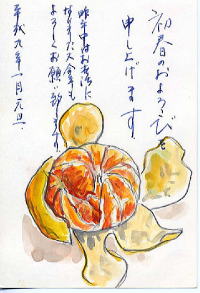 初春のおよろこび
を
申し上げます
昨年中はお世話に
なりました今年も
よろしくお願い致します
平成九年一月元旦